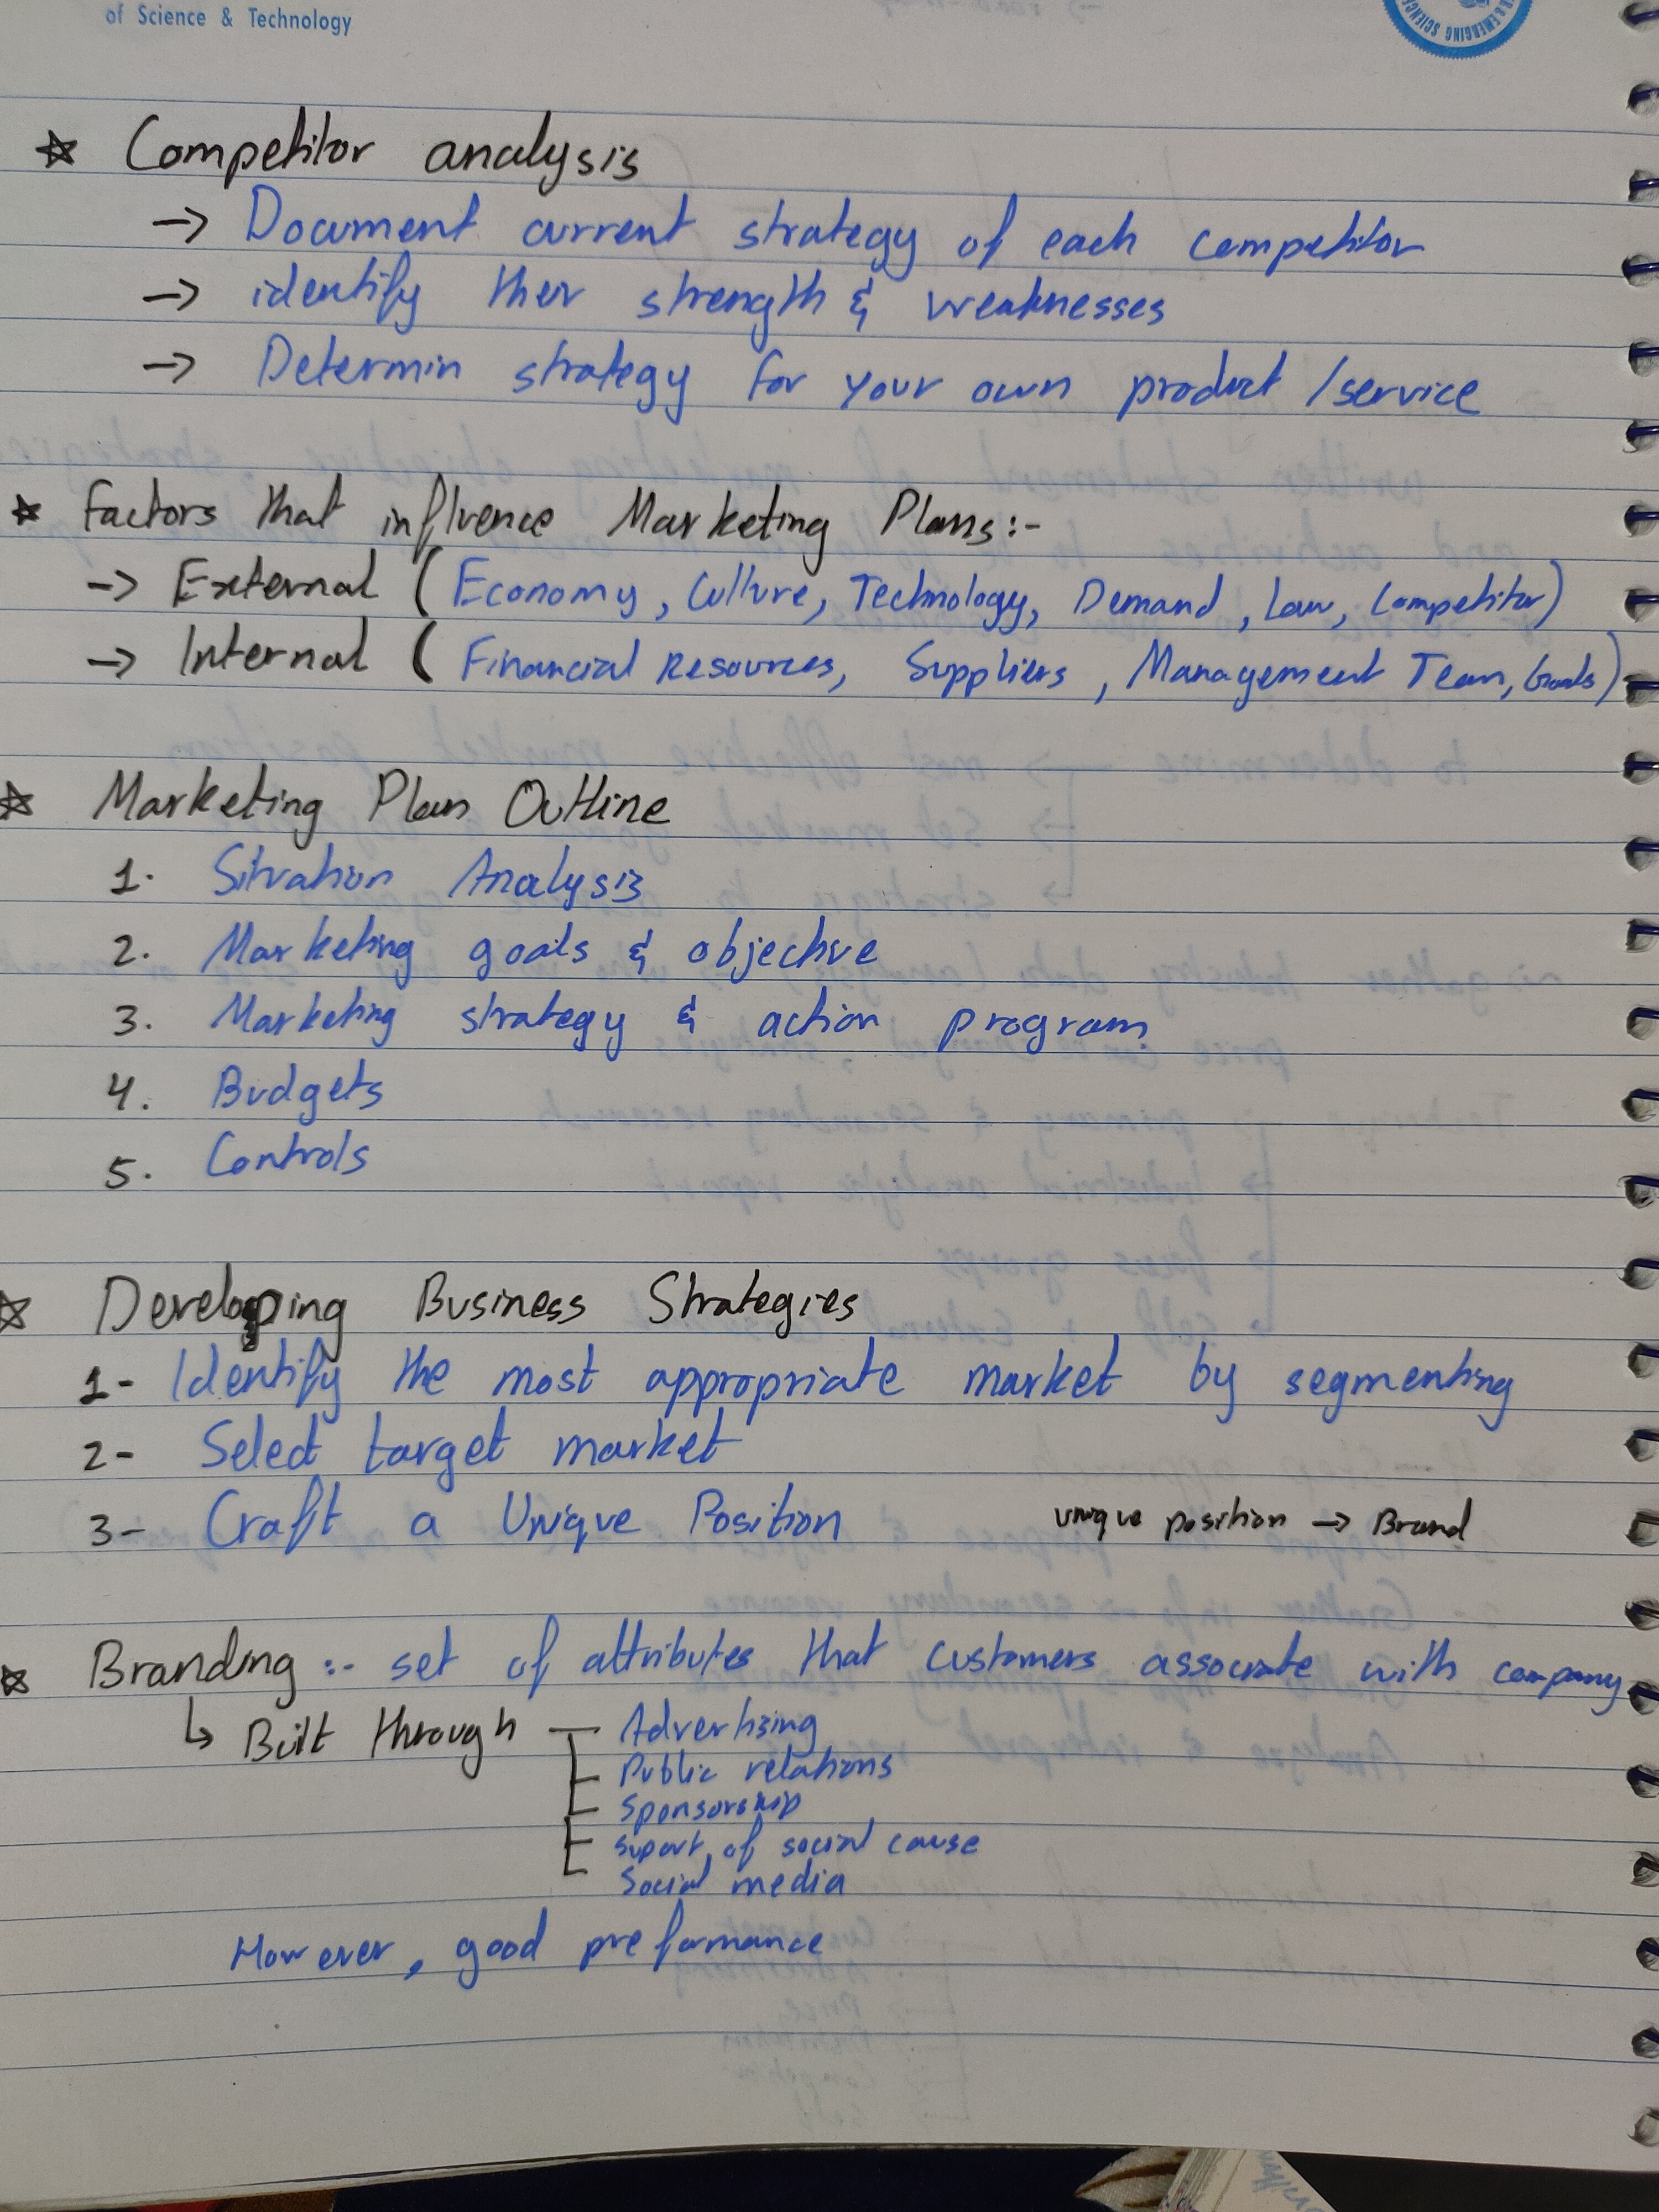 of Science & Technology
& EMERGING SCIENCE
☆ Competitor analysis
→ Document current strategy of each competitor
→ identify ther strength & weaknesses
→ Determin strategy for your own product /service
☆ Factors that influence Marketing Plans:-
→ External (Economy, Culture, Technology, Demand, Law, Competitor)
→ Internal (Financial Resources, Suppliers, Management Team, Goals)
☆ Marketing Plan Outline
1. Situation Analysis
2. Marketing goals & objective
3. Marketing strategy & action program
4. Budgets
5. Controls
☆ Developing Business Strategies
1- Identify the most appropriate market by segmenting
2- Select target market
3- Craft a Unique Position unique position → Brand
☆ Branding :- set of attributes that customers associate with company
↳ Built through Advertizing
Public relations
Sponsorship
suport of social cause
Social media
However, good preformance